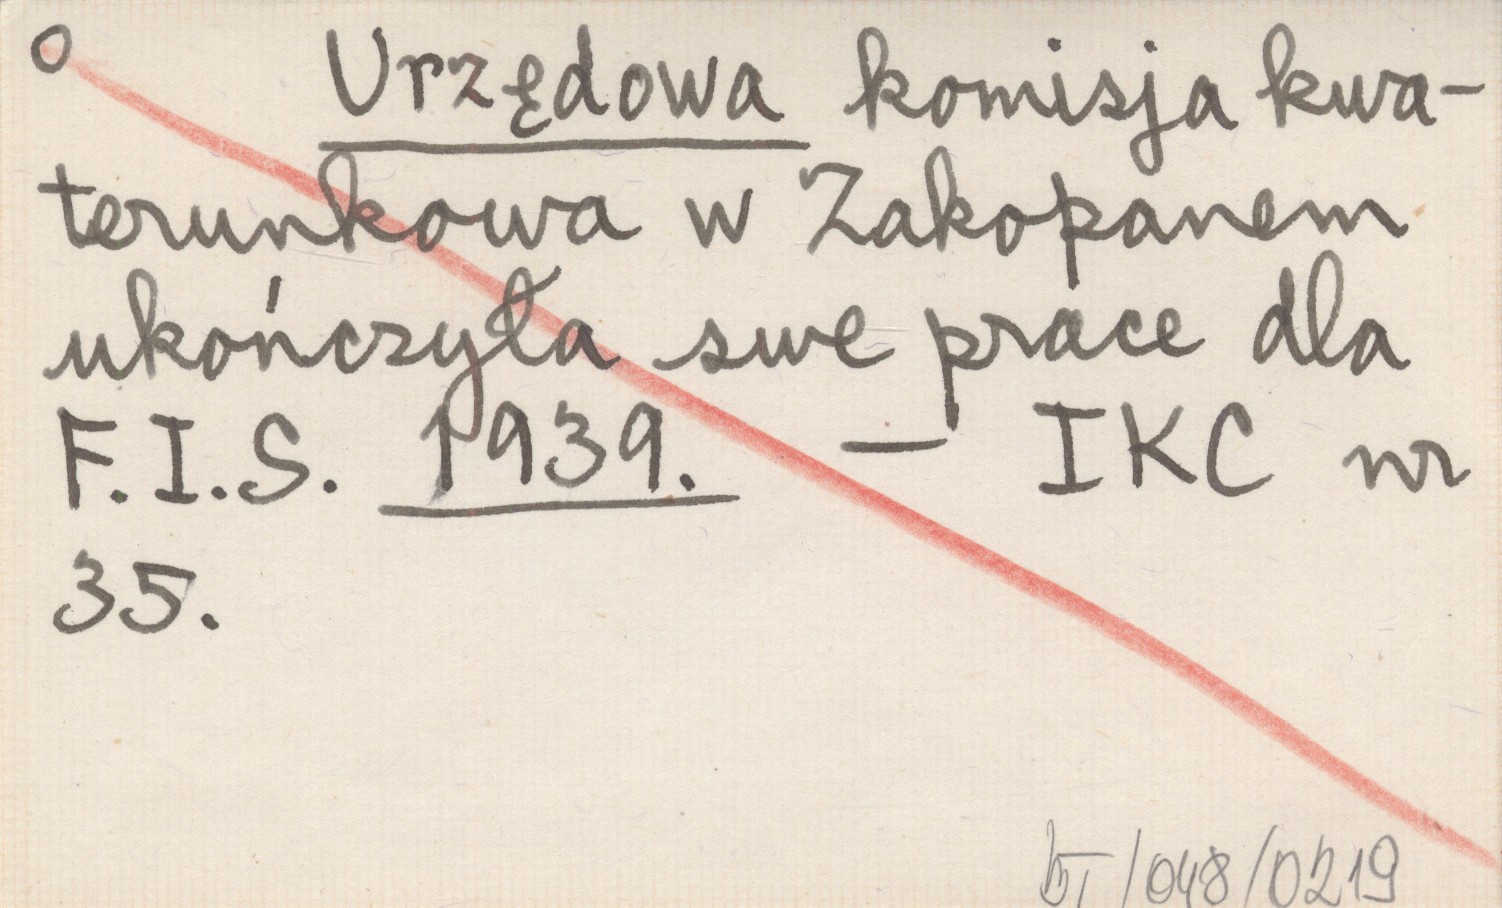 o Urzędowa komisja kwa-
terunkowa w Zakopanem
ukończyła swe prace dla
F.I.S. 1939. — IKC nr
35.
/048/0219